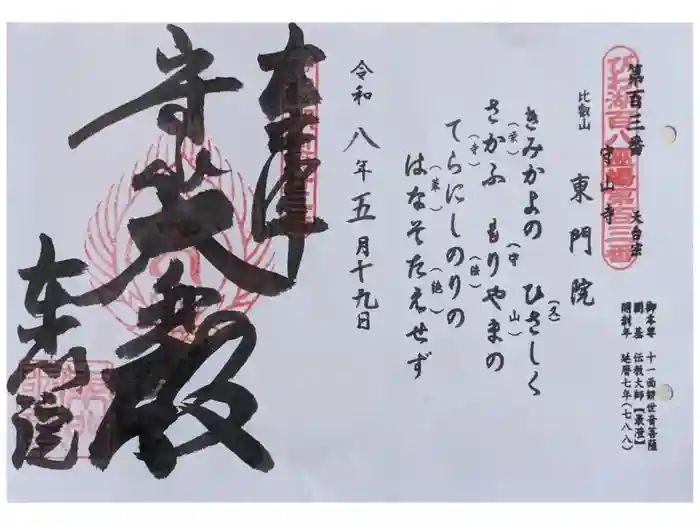 びわ湖百八霊場第百三番
第百三番 守山寺 天台宗
比叡山 東門院
御本尊 十一面観世音菩薩
開基 伝教大師【最澄】
開創年 延暦七年(七八八)
きみかよの ひさしく(久)
さかふ(栄) もりやまの(守山)
てらにしのりの(寺)(法)
はなそたえせず(華)(絶)
令和八年五月十九日
奉拝
守大悲殿
東門院